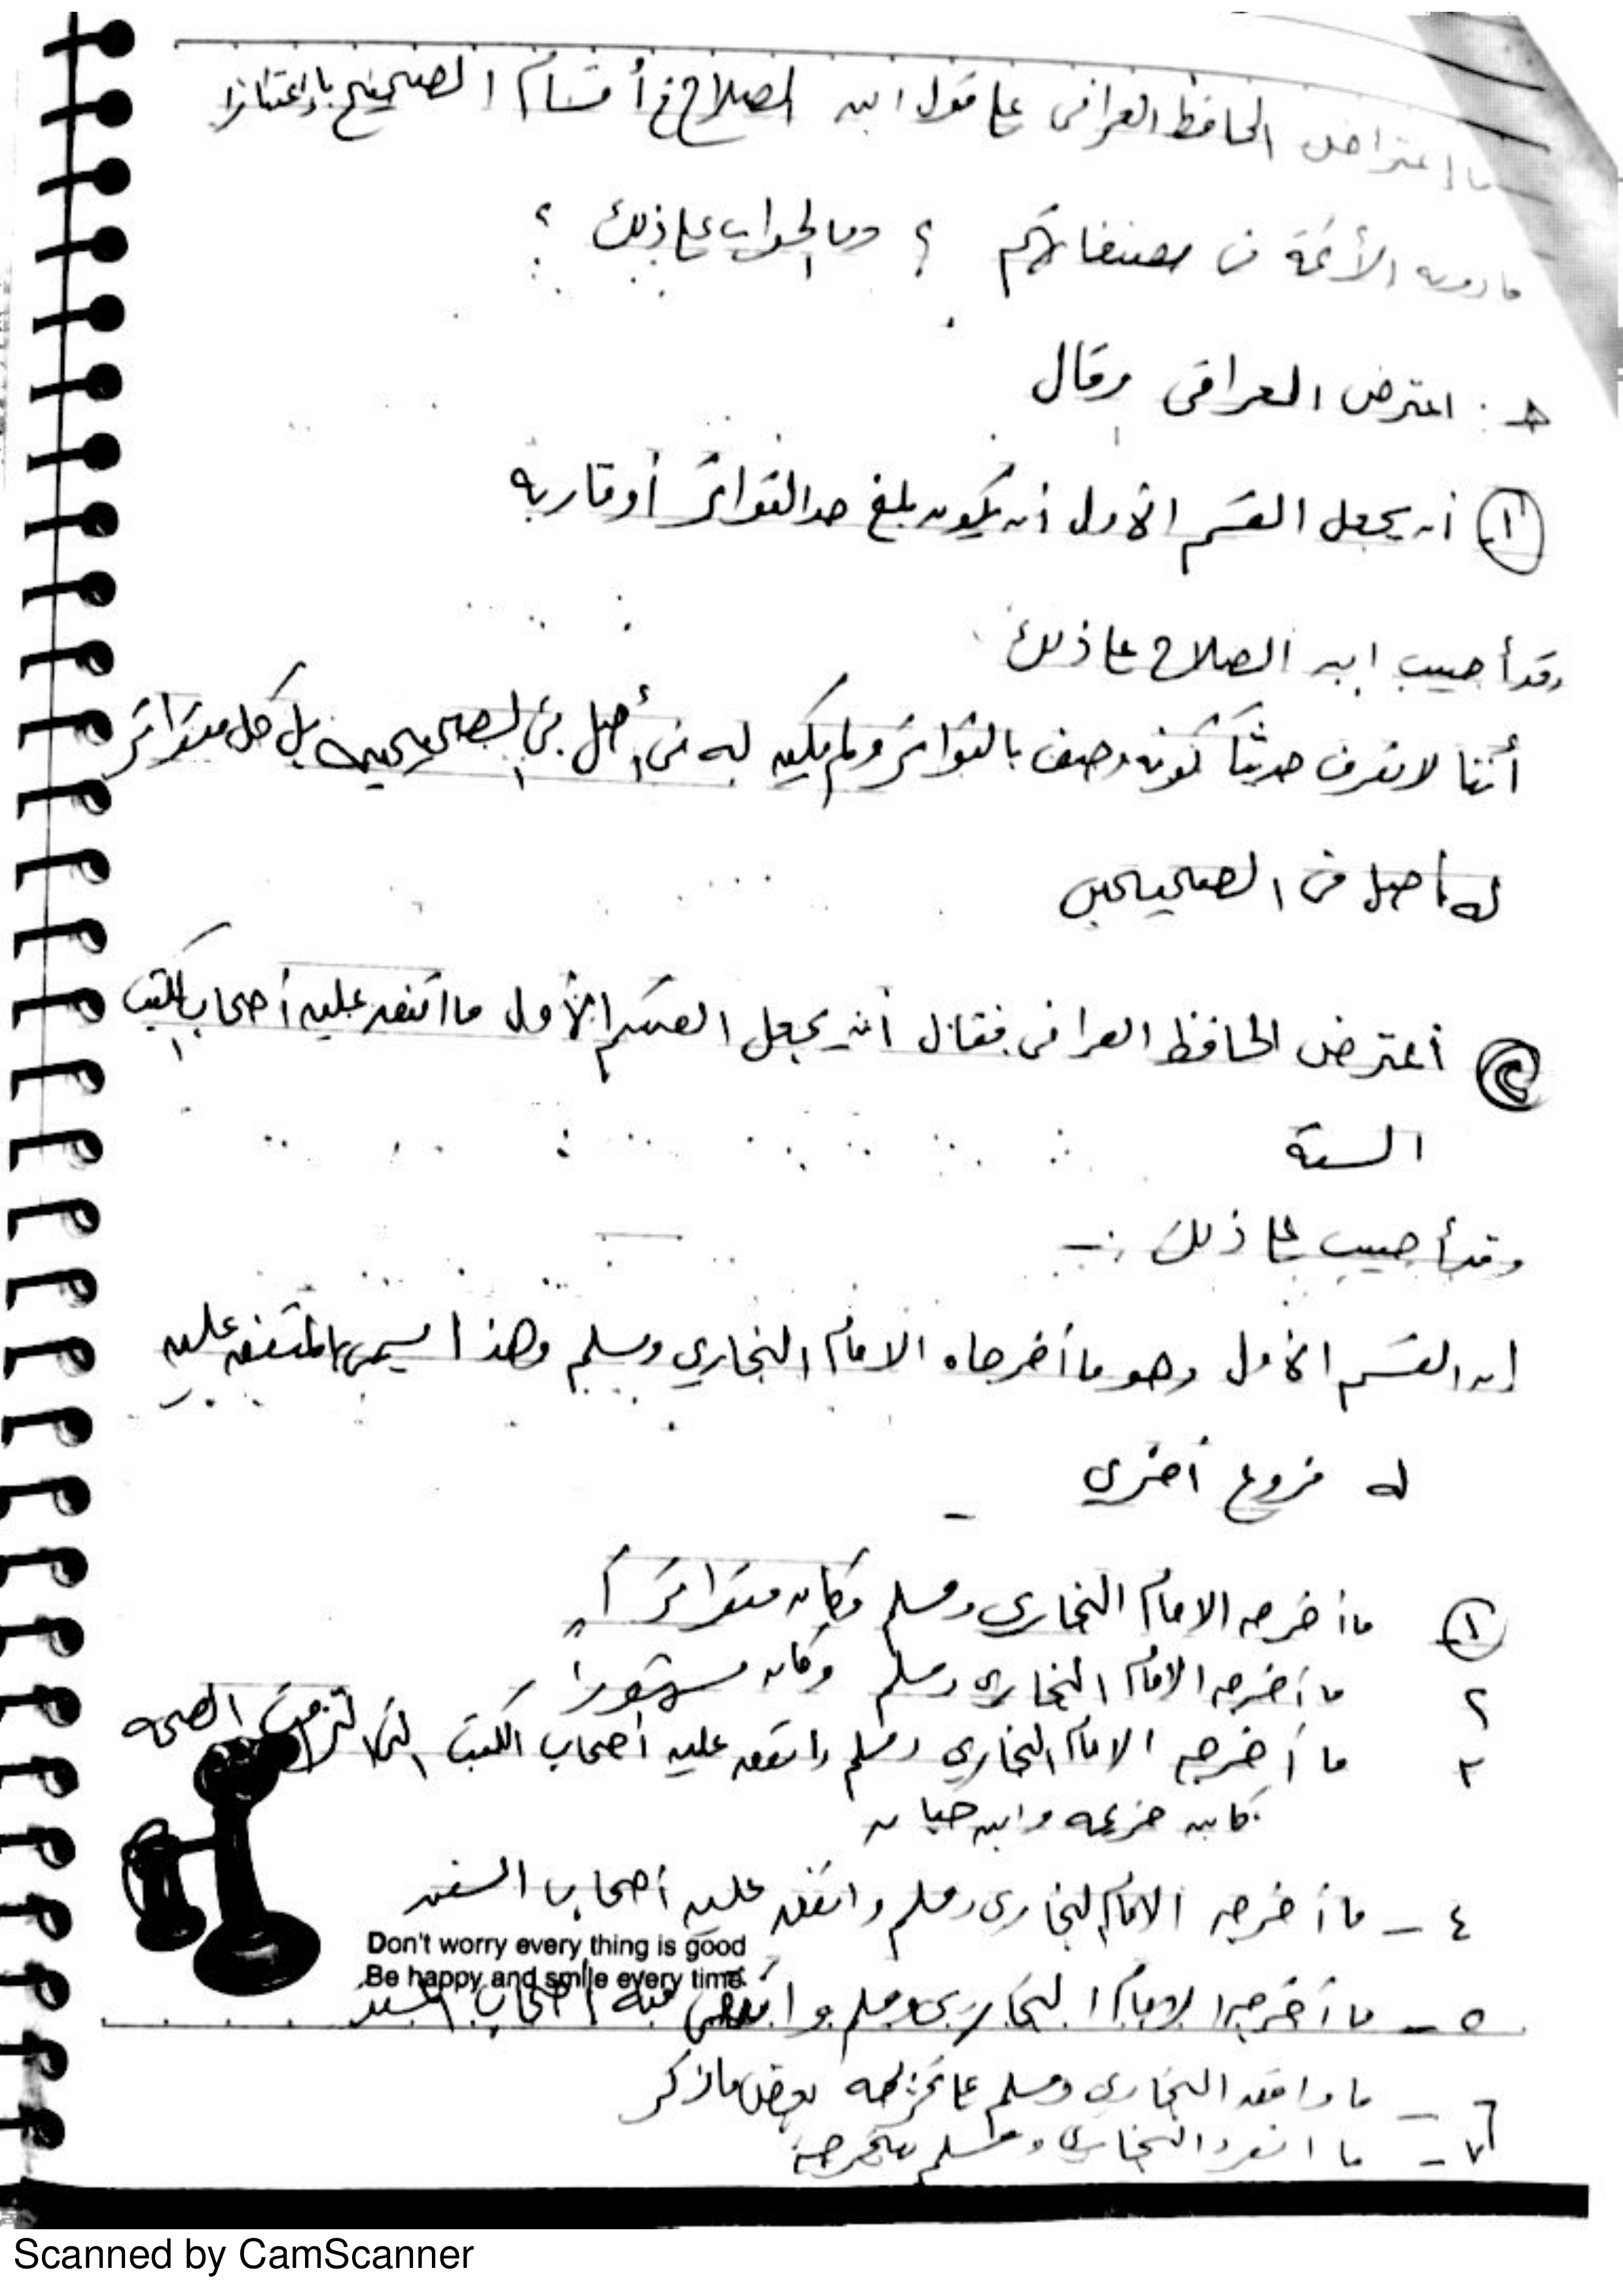 ما اعتراض الحافظ العراقى على قول ابن الصلاح في أقسام الصحيح باعتبار
ما رويه الأئمة فى مصنفاتهم ؟ وما الجواب على ذلك ؟
جـ : اعترض العراقى وقال
① أن يجعل القسم الأول أن يكون بلغ حد التواتر أو قاربه
وقد أجيب ابن الصلاح على ذلك
أننا لا نعرف حديثاً كونه وصف بالتواتر ولم يكن له فى أصل فى الصحيحين بل كل متواتر
له أصل فى الصحيحين
② أعترض الحافظ العراقى فقال أن يجعل القسم الأول ما اتفق عليه أصحاب الكتب
الستة
وقد أجيب على ذلك :-
إن القسم الأول وهو ما أخرجاه الامام البخاري ومسلم وهذا يسمى بالمتفق عليه
له فروع أخري
① ما أخرجه الامام البخارى ومسلم وكان متواتراً
٢ ما أخرجه الامام البخارى ومسلم وكان مشهوراً
٣ ما أخرجه الامام البخاري ومسلم واتفق عليه أصحاب الكتب التى التزمت الصحه
كابن خزيمه وابن حبان
٤ - ما أخرجه الامام البخارى ومسلم واتفق عليه أصحاب السنن
Don't worry every thing is good
Be happy and smile every time.
٥ - ما أخرجه الامام البخارى ومسلم و أصحاب السنن
٦ - ما وافقه البخاري ومسلم على تخريجه بعض ما ذكر
٧ - ما انفرد البخارى ومسلم بتخرجه
Scanned by CamScanner